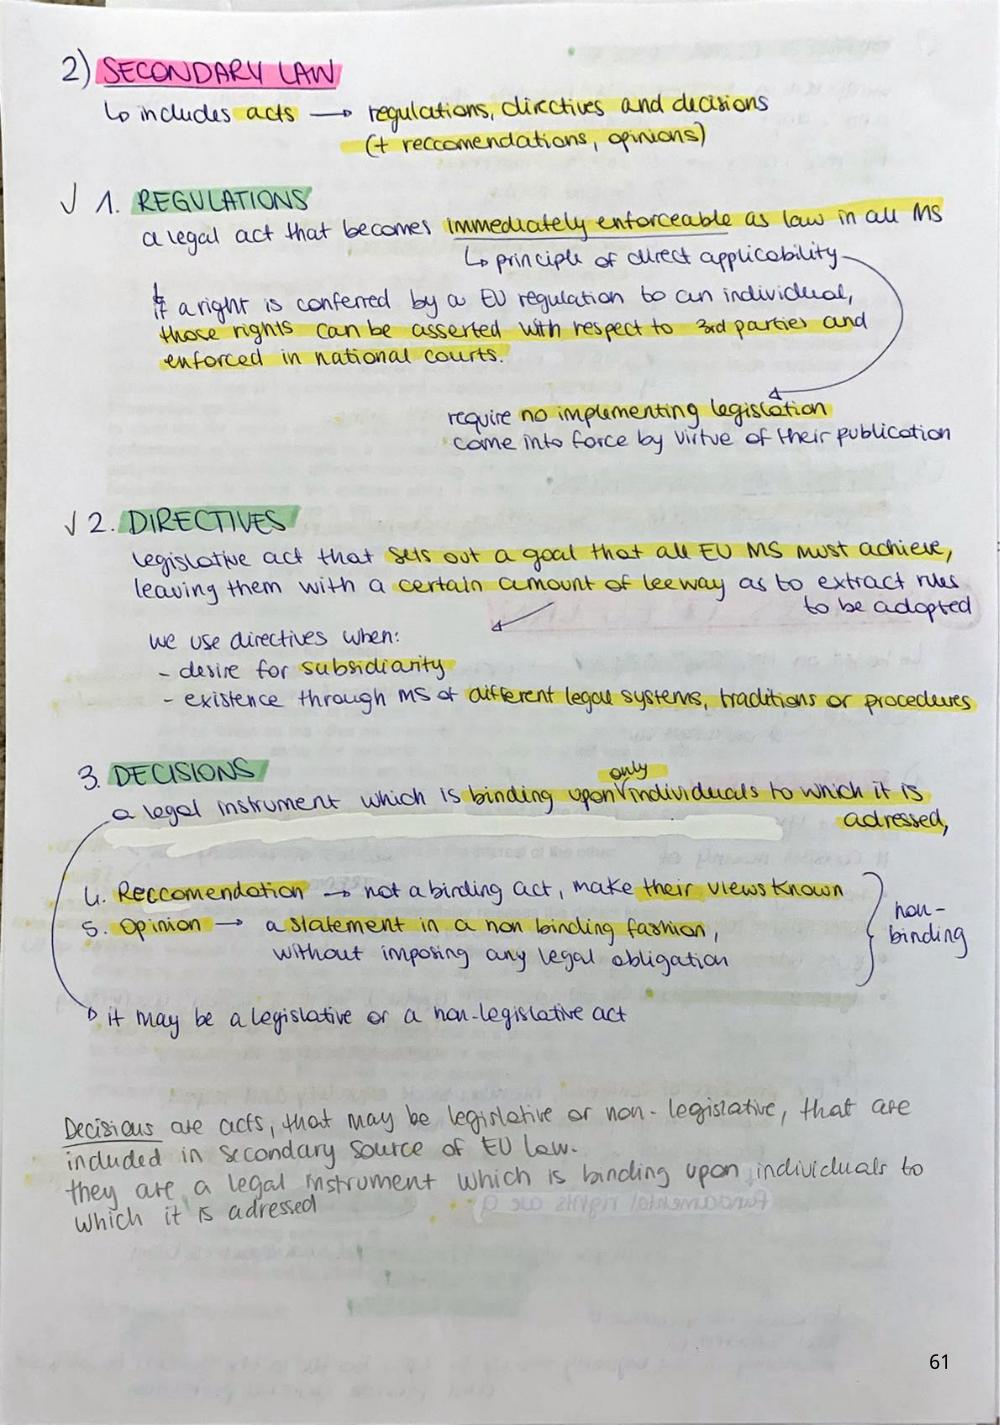 2) SECONDARY LAW
↳ includes acts → regulations, directives and decisions
(+ reccomendations, opinions)
√ 1. REGULATIONS
a legal act that becomes immediately enforceable as law in all MS
↳ principle of direct applicability
If a right is conferred by a EU regulation to an individual,
those rights can be asserted with respect to 3rd parties and
enforced in national courts.
require no implementing legislation
come into force by virtue of their publication
√ 2. DIRECTIVES
legislative act that sets out a goal that all EU MS must achieve,
leaving them with a certain amount of leeway as to extract rules
to be adopted
we use directives when:
- desire for subsidiarity
- existence through MS of different legal systems, traditions or procedures
3. DECISIONS
only
a legal instrument which is binding upon individuals to which it is
adressed,
4. Reccomendation → not a binding act, make their views known
5. Opinion → a statement in a non binding fashion,
without imposing any legal obligation
non-
binding
it may be a legislative or a non-legislative act
Decisions are acts, that may be legislative or non-legislative, that are
included in Secondary Source of EU Law.
they are a legal instrument which is binding upon individuals to
which it is adressed
61